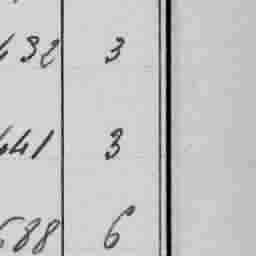 432 3
441 3
588 6